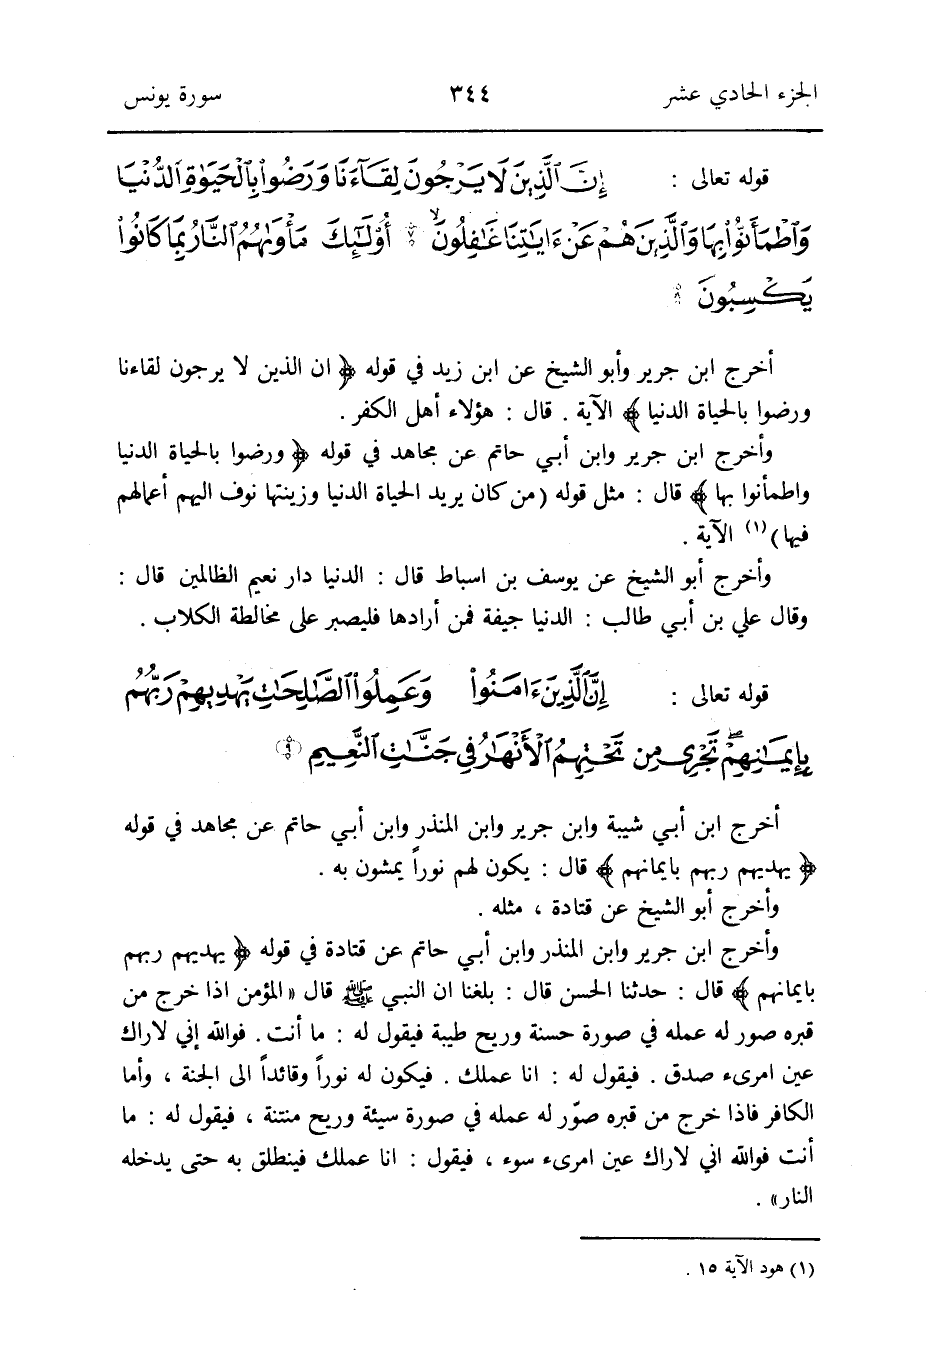 الجزء الحادي عشر ٣٤٤ سورة يونس
قوله تعالى : إِنَّ ٱلَّذِينَ لَا يَرْجُونَ لِقَآءَنَا وَرَضُوا۟ بِٱلْحَيَوٰةِ ٱلدُّنْيَا
وَٱطْمَأَنُّوا۟ بِهَا وَٱلَّذِينَ هُمْ عَنْ ءَايَٰتِنَا غَٰفِلُونَ ۝٧ أُو۟لَٰٓئِكَ مَأْوَىٰهُمُ ٱلنَّارُ بِمَا كَانُوا۟
يَكْسِبُونَ ۝٨
أخرج ابن جرير وأبو الشيخ عن ابن زيد في قوله ﴿ ان الذين لا يرجون لقاءنا
ورضوا بالحياة الدنيا ﴾ الآية . قال : هؤلاء أهل الكفر .
وأخرج ابن جرير وابن أبي حاتم عن مجاهد في قوله ﴿ ورضوا بالحياة الدنيا
واطمأنوا بها ﴾ قال : مثل قوله (من كان يريد الحياة الدنيا وزينتها نوف اليهم أعمالهم
فيها)(١) الآية .
وأخرج أبو الشيخ عن يوسف بن اسباط قال : الدنيا دار نعيم الظالمين قال :
وقال علي بن أبي طالب : الدنيا جيفة فمن أرادها فليصبر على مخالطة الكلاب .
قوله تعالى : إِنَّ ٱلَّذِينَ ءَامَنُوا۟ وَعَمِلُوا۟ ٱلصَّٰلِحَٰتِ يَهْدِيهِمْ رَبُّهُم
بِإِيمَٰنِهِمْ ۖ تَجْرِى مِن تَحْتِهِمُ ٱلْأَنْهَٰرُ فِى جَنَّٰتِ ٱلنَّعِيمِ (٩)
أخرج ابن أبي شيبة وابن جرير وابن المنذر وابن أبي حاتم عن مجاهد في قوله
﴿ يهديهم ربهم بايمانهم ﴾ قال : يكون لهم نوراً يمشون به .
وأخرج أبو الشيخ عن قتادة ، مثله .
وأخرج ابن جرير وابن المنذر وابن أبي حاتم عن قتادة في قوله ﴿ يهديهم ربهم
بايمانهم ﴾ قال : حدثنا الحسن قال : بلغنا ان النبي ﷺ قال «المؤمن اذا خرج من
قبره صور له عمله في صورة حسنة وريح طيبة فيقول له : ما أنت . فوالله إني لاراك
عين امرىء صدق . فيقول له : انا عملك . فيكون له نوراً وقائداً الى الجنة ، وأما
الكافر فاذا خرج من قبره صوّر له عمله في صورة سيئة وريح منتنة ، فيقول له : ما
أنت فوالله اني لاراك عين امرىء سوء ، فيقول : انا عملك فينطلق به حتى يدخله
النار» .
(١) هود الآية ١٥ .